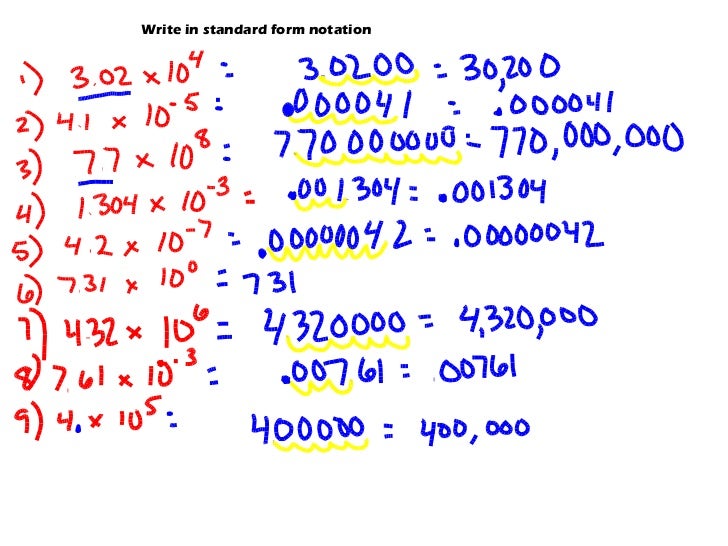 Write in standard form notation
1) 3.02 x 10⁴ = 3.0200 = 30,200
2) 4.1 x 10⁻⁵ = .000041 = .000041
3) 7.7 x 10⁸ = 7.70000000 = 770,000,000
4) 1.304 x 10⁻³ = .001304 = .001304
5) 4.2 x 10⁻⁷ = .00000042 = .00000042
6) 7.31 x 10⁰ = 7.31
7) 4.32 x 10⁶ = 4320000 = 4,320,000
8) 7.61 x 10⁻³ = .00761 = .00761
9) 4. x 10⁵ = 400000 = 400,000